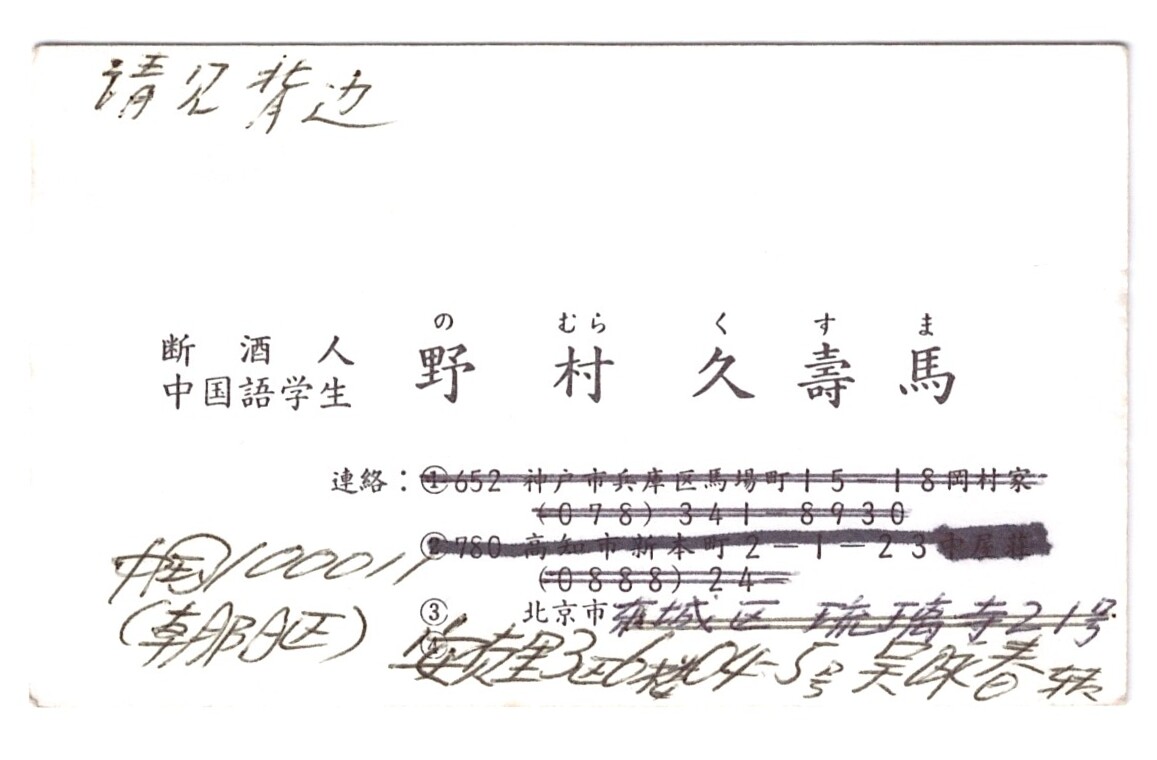 请见背边
の むら く す ま
断酒人
野村久壽馬
中国語学生
連絡：①652 神戸市兵庫区馬場町15−18岡村家
(078)341−8930
②780 高知市新本町2−1−23
(0888)24−
中国100017
③ 北京市 城区 琉璃寺21号
(朝阳区)
④ 里3区6楼04-5号 吴 春 转